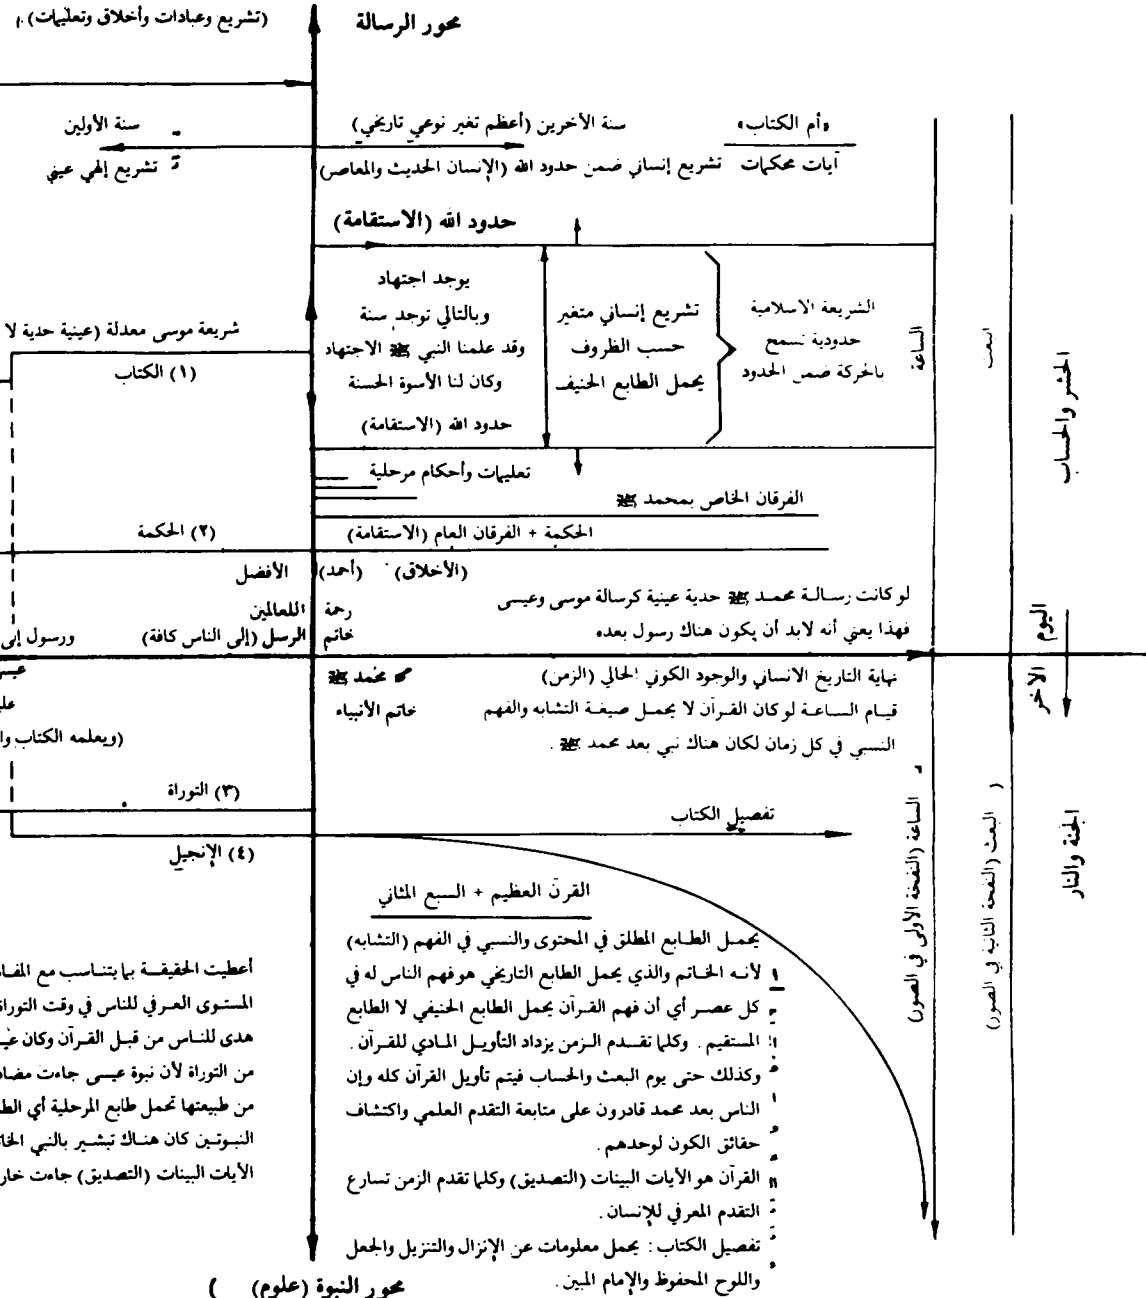 محور الرسالة
(تشريع وعبادات وأخلاق وتعليمات).
«أم الكتاب»
سنة الآخرين (أعظم تغير نوعي تاريخي)
سنة الأولين
آيات محكمات
تشريع إنساني ضمن حدود الله (الإنسان الحديث والمعاصر)
تشريع إلهي عيني
حدود الله (الاستقامة)
يوجد اجتهاد
وبالتالي توجد سنة
وقد علمنا النبي ﷺ الاجتهاد
وكان لنا الأسوة الحسنة
حدود الله (الاستقامة)
تشريع إنساني متغير
حسب الظروف
يحمل الطابع الحنيف
الشريعة الاسلامية
حدودية تسمح
بالحركة ضمن الحدود
الساعة
البعث
الحشر والحساب
شريعة موسى معدلة (عينية حدية لا
(١) الكتاب
تعليمات وأحكام مرحلية
الفرقان الخاص بمحمد ﷺ
الحكمة + الفرقان العام (الاستقامة)
(٢) الحكمة
(الأخلاق) (أحمد) الأفضل
رحمة اللعالمين
خاتم الرسل (إلى الناس كافة)
ورسول إلى
لو كانت رسالة محمد ﷺ حدية عينية كرسالة موسى وعيسى
فهذا يعني أنه لابد أن يكون هناك رسول بعده
اليوم الآخر
نهاية التاريخ الانساني والوجود الكوني الحالي (الزمن)
قيام الساعة لو كان القرآن لا يحمل صيغة التشابه والفهم
النسبي في كل زمان لكان هناك نبي بعد محمد ﷺ .
محمد ﷺ
خاتم الأنبياء
(ويعلمه الكتاب وا
(٣) التوراة
(٤) الإنجيل
تفصيل الكتاب
الساعة (النفخة الأولى في الصور)
البعث (النفحة الثانية في الصور)
الجنة والنار
القرآن العظيم + السبع المثاني
يحمل الطابع المطلق في المحتوى والنسبي في الفهم (التشابه)
لأنه الخاتم والذي يحمل الطابع التاريخي هو فهم الناس له في
كل عصر أي أن فهم القرآن يحمل الطابع الحنيفي لا الطابع
المستقيم . وكلما تقدم الزمن يزداد التأويل المادي للقرآن .
وكذلك حتى يوم البعث والحساب فيتم تأويل القرآن كله وإن
الناس بعد محمد قادرون على متابعة التقدم العلمي واكتشاف
حقائق الكون لوحدهم .
القرآن هو الأيات البينات (التصديق) وكلما تقدم الزمن تسارع
التقدم المعرفي للإنسان .
تفصيل الكتاب : يحمل معلومات عن الإنزال والتنزيل والجعل
واللوح المحفوظ والإمام المبين .
أعطيت الحقيقة بما يتناسب مع
المستوى العرفي للناس في وقت
هدى للناس من قبل القرآن وكان
من التوراة لأن نبوة عيسى جاءت
من طبيعتها تحمل طابع المرحلية أي
النبوتين كان هناك تبشير بالنبي
الأيات البينات (التصديق) جاءت
محور النبوة (علوم)